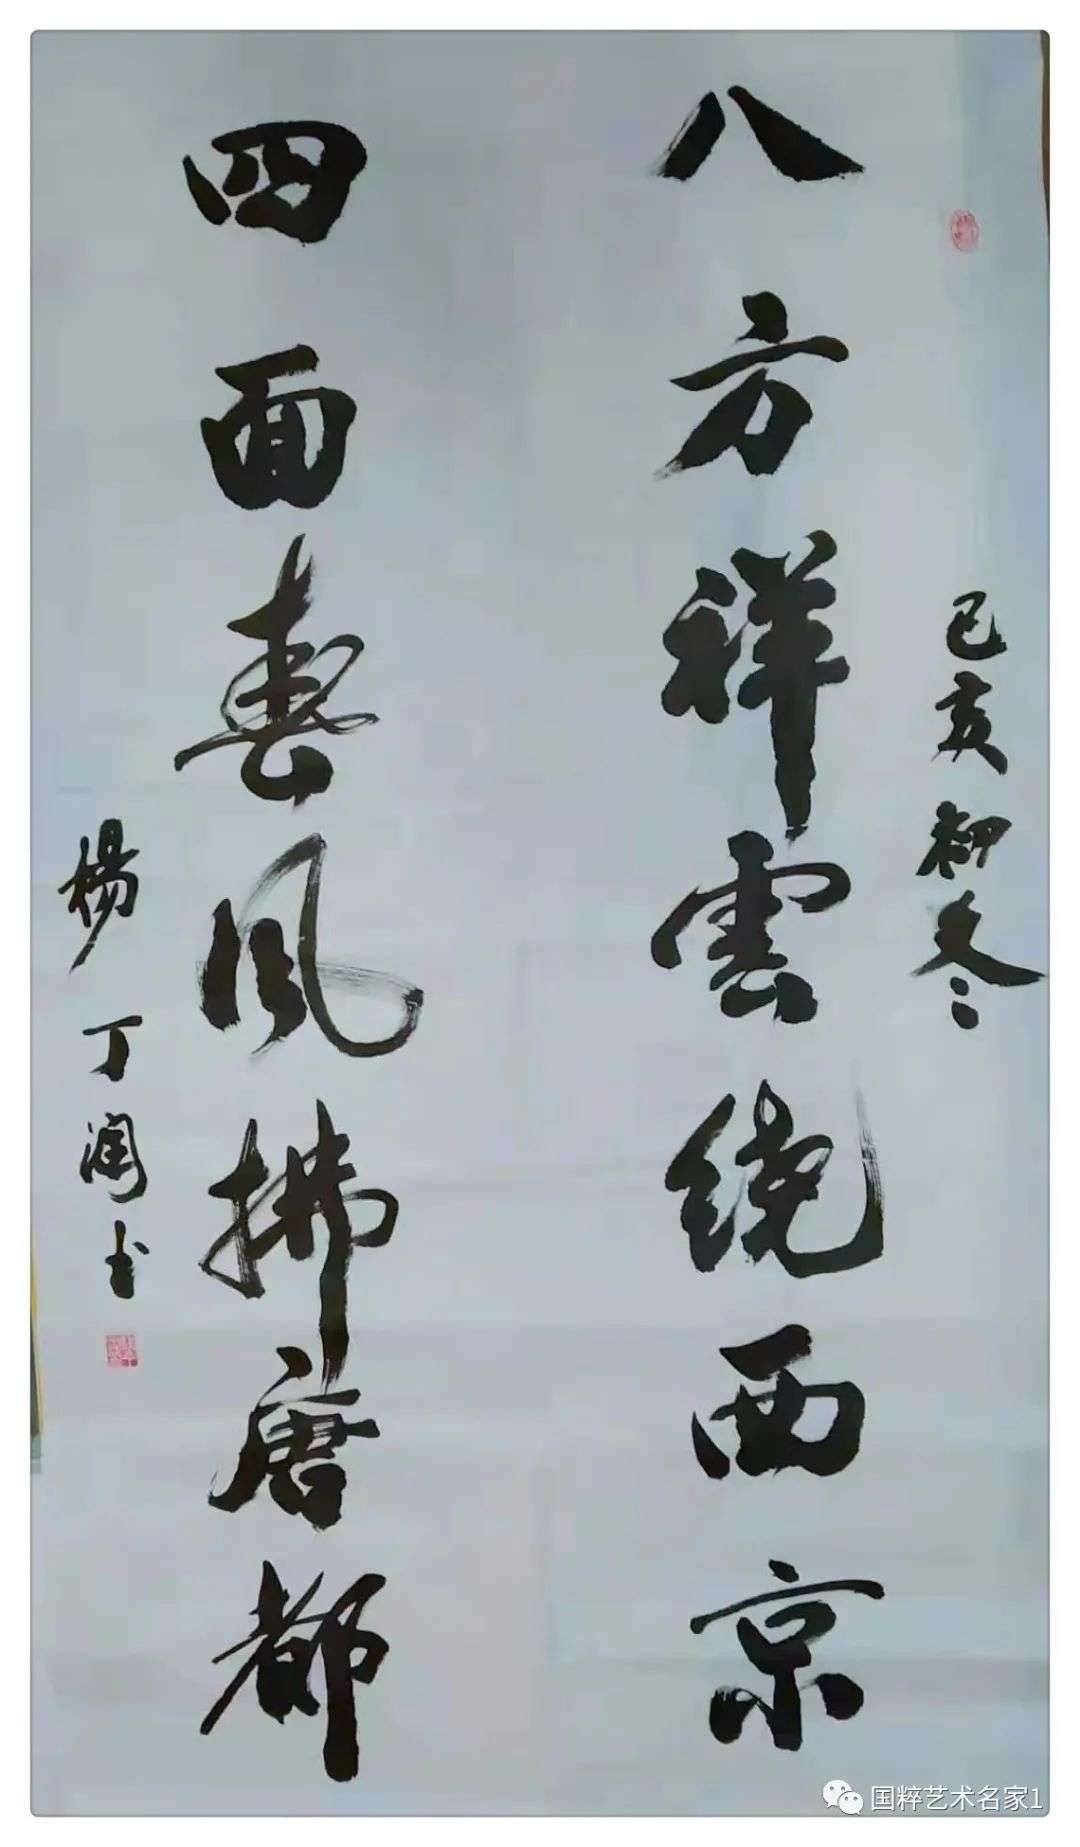 己亥初冬
八方祥雲绕西京
四面春风拂唐都
楊丁阁书
国粹艺术名家1